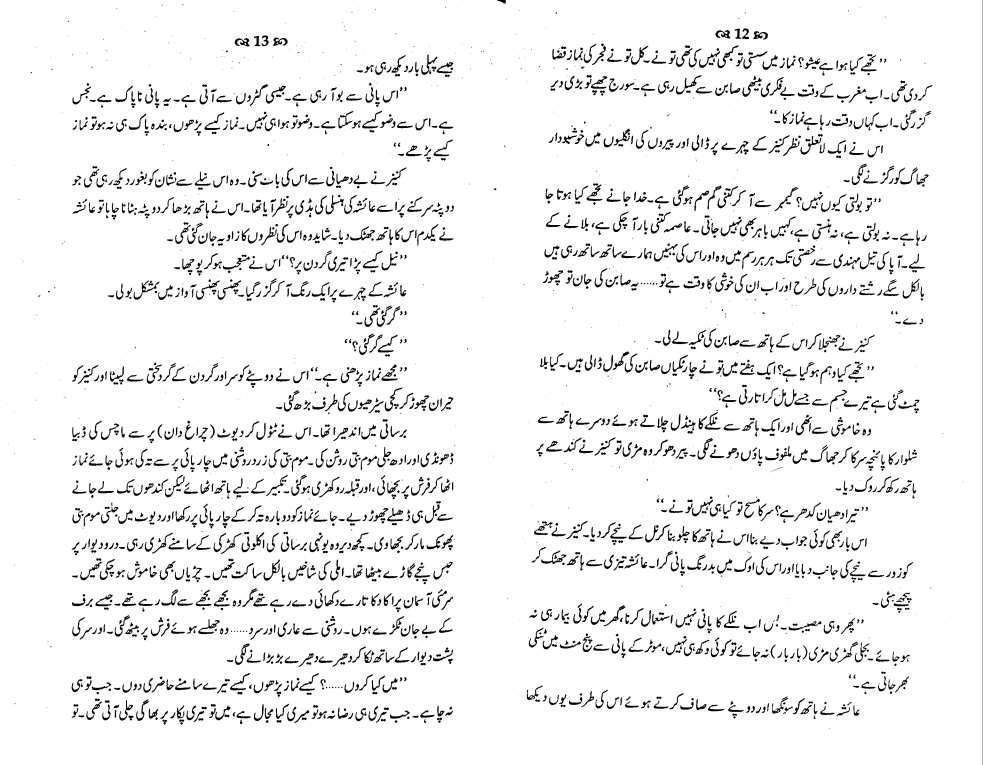 12
’’تجھے کیا ہوا ہے عیشو؟ نماز میں سستی تو کبھی نہیں کی تھی تو نے۔ کل تو نے فجر کی نماز قضا
کردی تھی۔ اب مغرب کے وقت بے فکری بیٹھی صابن سے کھیل رہی ہے۔ سورج چھپے تو بڑی دیر
گزر گئی۔ اب کہاں وقت رہا ہے نماز کا۔‘‘
اس نے ایک لاتعلق نظر کنیز کے چہرے پر ڈالی اور پیروں کی انگلیوں میں خوشبودار
جھاگ کو رگڑنے لگی۔
’’تو بولتی کیوں نہیں؟ گیمبر سے آ کر کتنی گم صم ہوگئی ہے۔ خدا جانے تجھے کیا ہوتا جا
رہا ہے۔ نہ بولتی ہے، نہ ہنستی ہے، کہیں باہر بھی نہیں جاتی۔ عاصمہ کتنی بار آچکی ہے، بلانے کے
لیے۔ آپا کی تیل مہندی سے رخصتی تک ہر ہر رسم میں وہ اور اس کی بہنیں ہمارے ساتھ ساتھ رہی ہیں
بالکل سگے رشتے داروں کی طرح اور اب ان کی خوشی کا وقت ہے تو……یہ صابن کی جان تو چھوڑ
دے۔‘‘
کنیز نے جھنجلا کر اس کے ہاتھ سے صابن کی ٹکیہ لے لی۔
’’تجھے کیا وہم ہوگیا ہے؟ ایک ہفتے میں تو نے چار ٹکیاں صابن کی گھول ڈالی ہیں۔ کیا بلا
چمٹ گئی ہے تیرے جسم سے جسے مل مل کر اتارتی ہے؟‘‘
وہ خاموشی سے اٹھی اور ایک ہاتھ سے نلکے کا ہینڈل چلاتے ہوئے دوسرے ہاتھ سے
شلوار کا پائنچہ سرکا کر جھاگ میں ملفوف پاؤں دھونے لگی۔ پیر دھو کر وہ مڑی تو کنیز نے کندھے پر
ہاتھ رکھ کر روک دیا۔
’’تیرا دھیان کدھر ہے؟ سر کا مسح تو کیا ہی نہیں تو نے۔‘‘
اس بار بھی کوئی جواب دیے بنا اس نے ہاتھ کا چلو بنا کر نل کے نیچے کردیا۔ کنیز نے ہتھے
کو زور سے نیچے کی جانب دبایا اور اس کی اوک میں بدرنگ پانی گرا۔ عائشہ تیزی سے ہاتھ جھٹک کر
پیچھے ہٹی۔
’’پھر وہی مصیبت۔ بُس اب نلکے کا پانی نہیں استعمال کرنا، گھر میں کوئی بیمار ہی نہ
ہوجائے۔ بجلی گھڑی مڑی (بار بار) نہ جائے تو کوئی دکھ ہی نہیں، موٹر کے پانی سے پنج منٹ میں ٹنکی
بھر جاتی ہے۔‘‘
عائشہ نے ہاتھ کو سونگھا اور دوپٹے سے صاف کرتے ہوئے اس کی طرف یوں دیکھا
13
جیسے پہلی بار دیکھ رہی ہو۔
’’اس پانی سے بو آرہی ہے۔ جیسی گٹروں سے آتی ہے۔ یہ پانی ناپاک ہے۔ نجس
ہے۔ اس سے وضو کیسے ہوسکتا ہے۔ وضو تو ہوا ہی نہیں۔ نماز کیسے پڑھوں، بندہ پاک ہی نہ ہو تو نماز
کیسے پڑھے۔‘‘
کنیز نے بے دھیانی سے اس کی بات سنی۔ وہ اس نیلے سے نشان کو بغور دیکھ رہی تھی جو
دوپٹہ سرکنے پر اسے عائشہ کی ہنسلی کی ہڈی پر نظر آیا تھا۔ اس نے ہاتھ بڑھا کر دوپٹہ ہٹانا چاہا تو عائشہ
نے یکدم اس کا ہاتھ جھٹک دیا۔ شاید وہ اس کی نظروں کا زاویہ جان گئی تھی۔
’’نیل کیسے پڑا تیری گردن پر؟‘‘ اس نے متعجب ہو کر پوچھا۔
عائشہ کے چہرے پر ایک رنگ آ کر گزر گیا۔ پھنسی پھنسی آواز میں بمشکل بولی۔
’’گر گئی تھی۔‘‘
’’کیسے گر گئی؟‘‘
’’مجھے نماز پڑھنی ہے۔‘‘ اس نے دوپٹے کو سر اور گردن کے گرد سختی سے لپیٹا اور کنیز کو
حیران چھوڑ کر کچی سیڑھیوں کی طرف بڑھ گئی۔
برساتی میں اندھیرا تھا۔ اس نے ٹٹول کر دیوٹ (چراغ دان) پر سے ماچس کی ڈبیا
ڈھونڈی اور ادھ جلی موم بتی روشن کی۔ موم بتی کی زرد روشنی میں چارپائی پر سے تہ کی ہوئی جائے نماز
اٹھا کر فرش پر بچھائی، اور قبلہ رو کھڑی ہوگئی۔ تکبیر کے لیے ہاتھ اٹھائے لیکن کندھوں تک لے جانے
سے قبل ہی ڈھیلے چھوڑ دیے۔ جائے نماز کو دوبارہ تہ کر کے چارپائی پر رکھا اور دیوٹ میں جلتی موم بتی
پھونک مار کر بجھادی۔ کچھ دیر وہ یونہی برساتی کی اکلوتی کھڑکی کے سامنے کھڑی رہی۔ در و دیوار پر
حبس پنجے گاڑے بیٹھا تھا۔ املی کی شاخیں بالکل ساکت تھیں۔ چڑیاں بھی خاموش ہو چکی تھیں۔
سرمئی آسمان پر اکا دکا تارے دکھائی دے رہے تھے مگر وہ بجھے بجھے سے لگ رہے تھے۔ جیسے برف
کے بے جان ٹکڑے ہوں۔ روشنی سے عاری اور سرد……وہ جھلسے ہوئے فرش پر بیٹھ گئی۔ اور سر کی
پشت دیوار کے ساتھ ٹکا کر دھیرے دھیرے بڑبڑانے لگی۔
’’میں کیا کروں……؟ کیسے نماز پڑھوں، کیسے تیرے سامنے حاضری دوں۔ جب تو ہی
نہ چاہے۔ جب تیری ہی رضا نہ ہو تو میری کیا مجال ہے، میں تو تیری پکار پر بھاگی چلی آتی تھی۔ تو